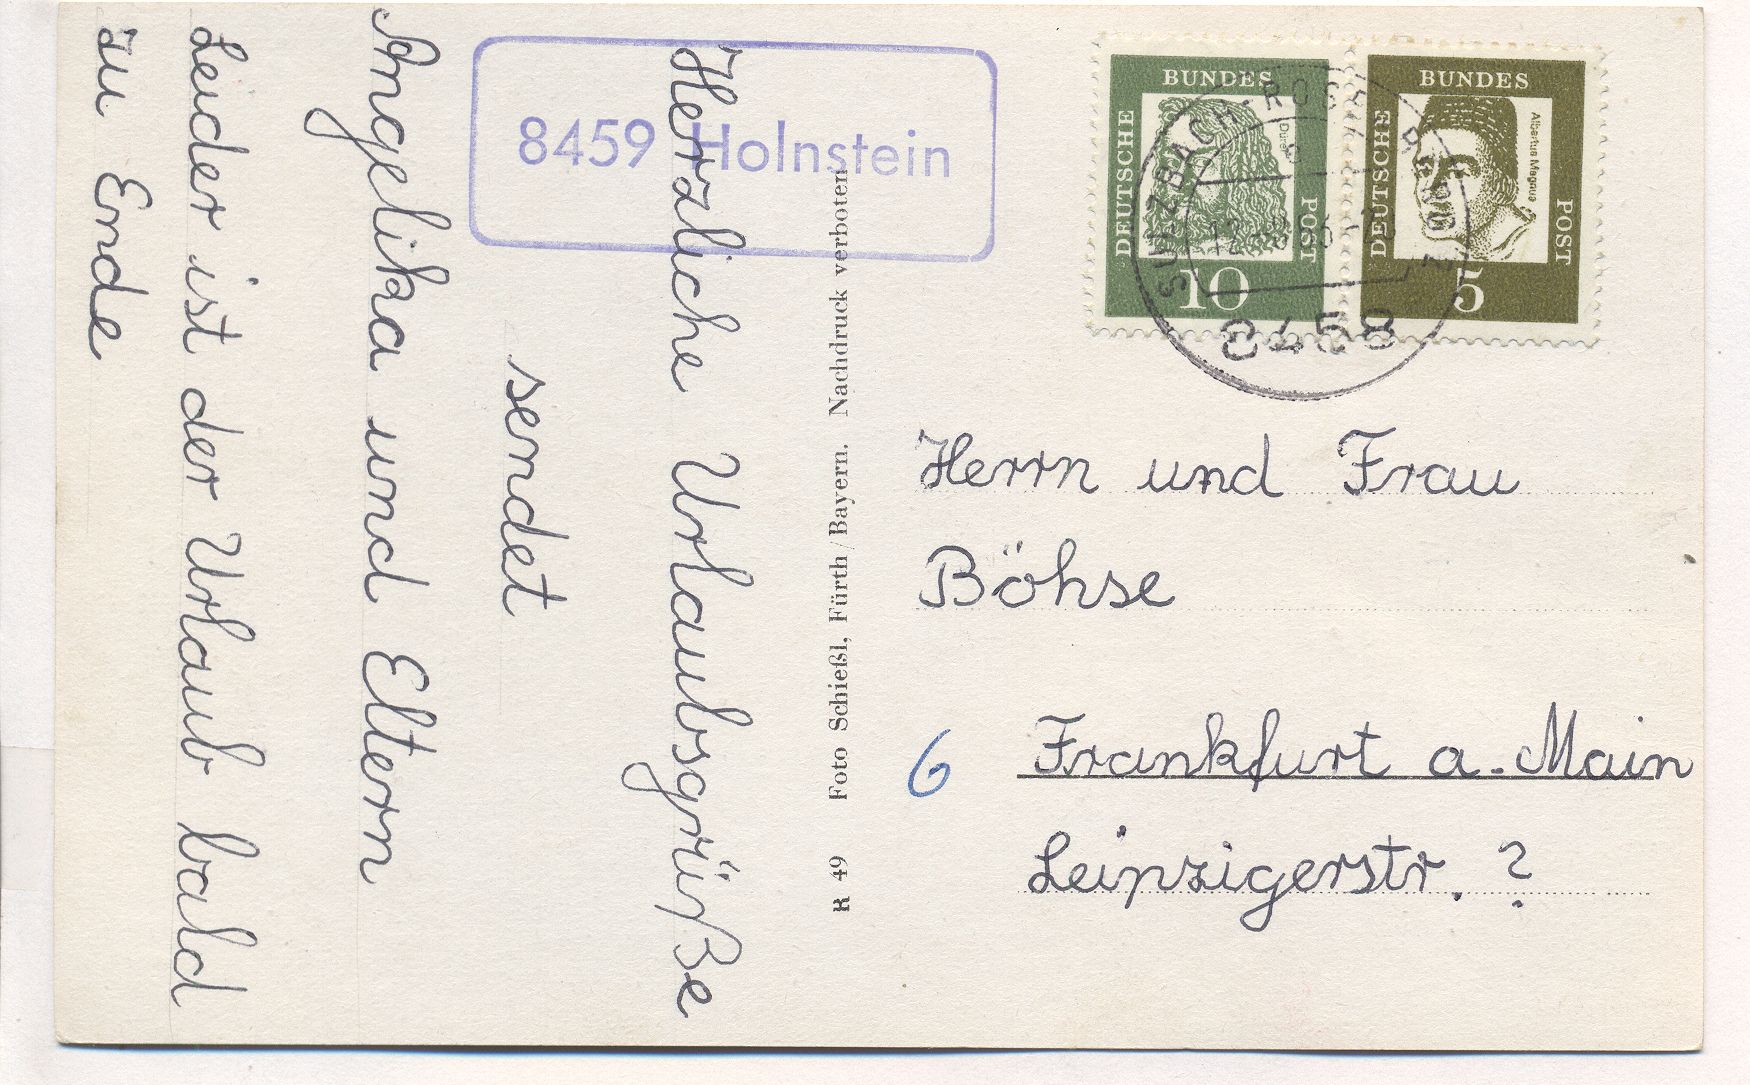 Herzliche Urlaubsgrüße
sendet
Angelika und Eltern
Leider ist der Urlaub bald
zu Ende
8459 Holnstein
R 49 Foto Schießl, Fürth/Bayern. Nachdruck verboten
DEUTSCHE
BUNDES
POST
Dürer
10
DEUTSCHE
BUNDES
POST
Albertus Magnus
5
SULZBACH-ROSENBERG 2
8458
Herrn und Frau
Böhse
6 Frankfurt a. Main
Leipzigerstr. ?